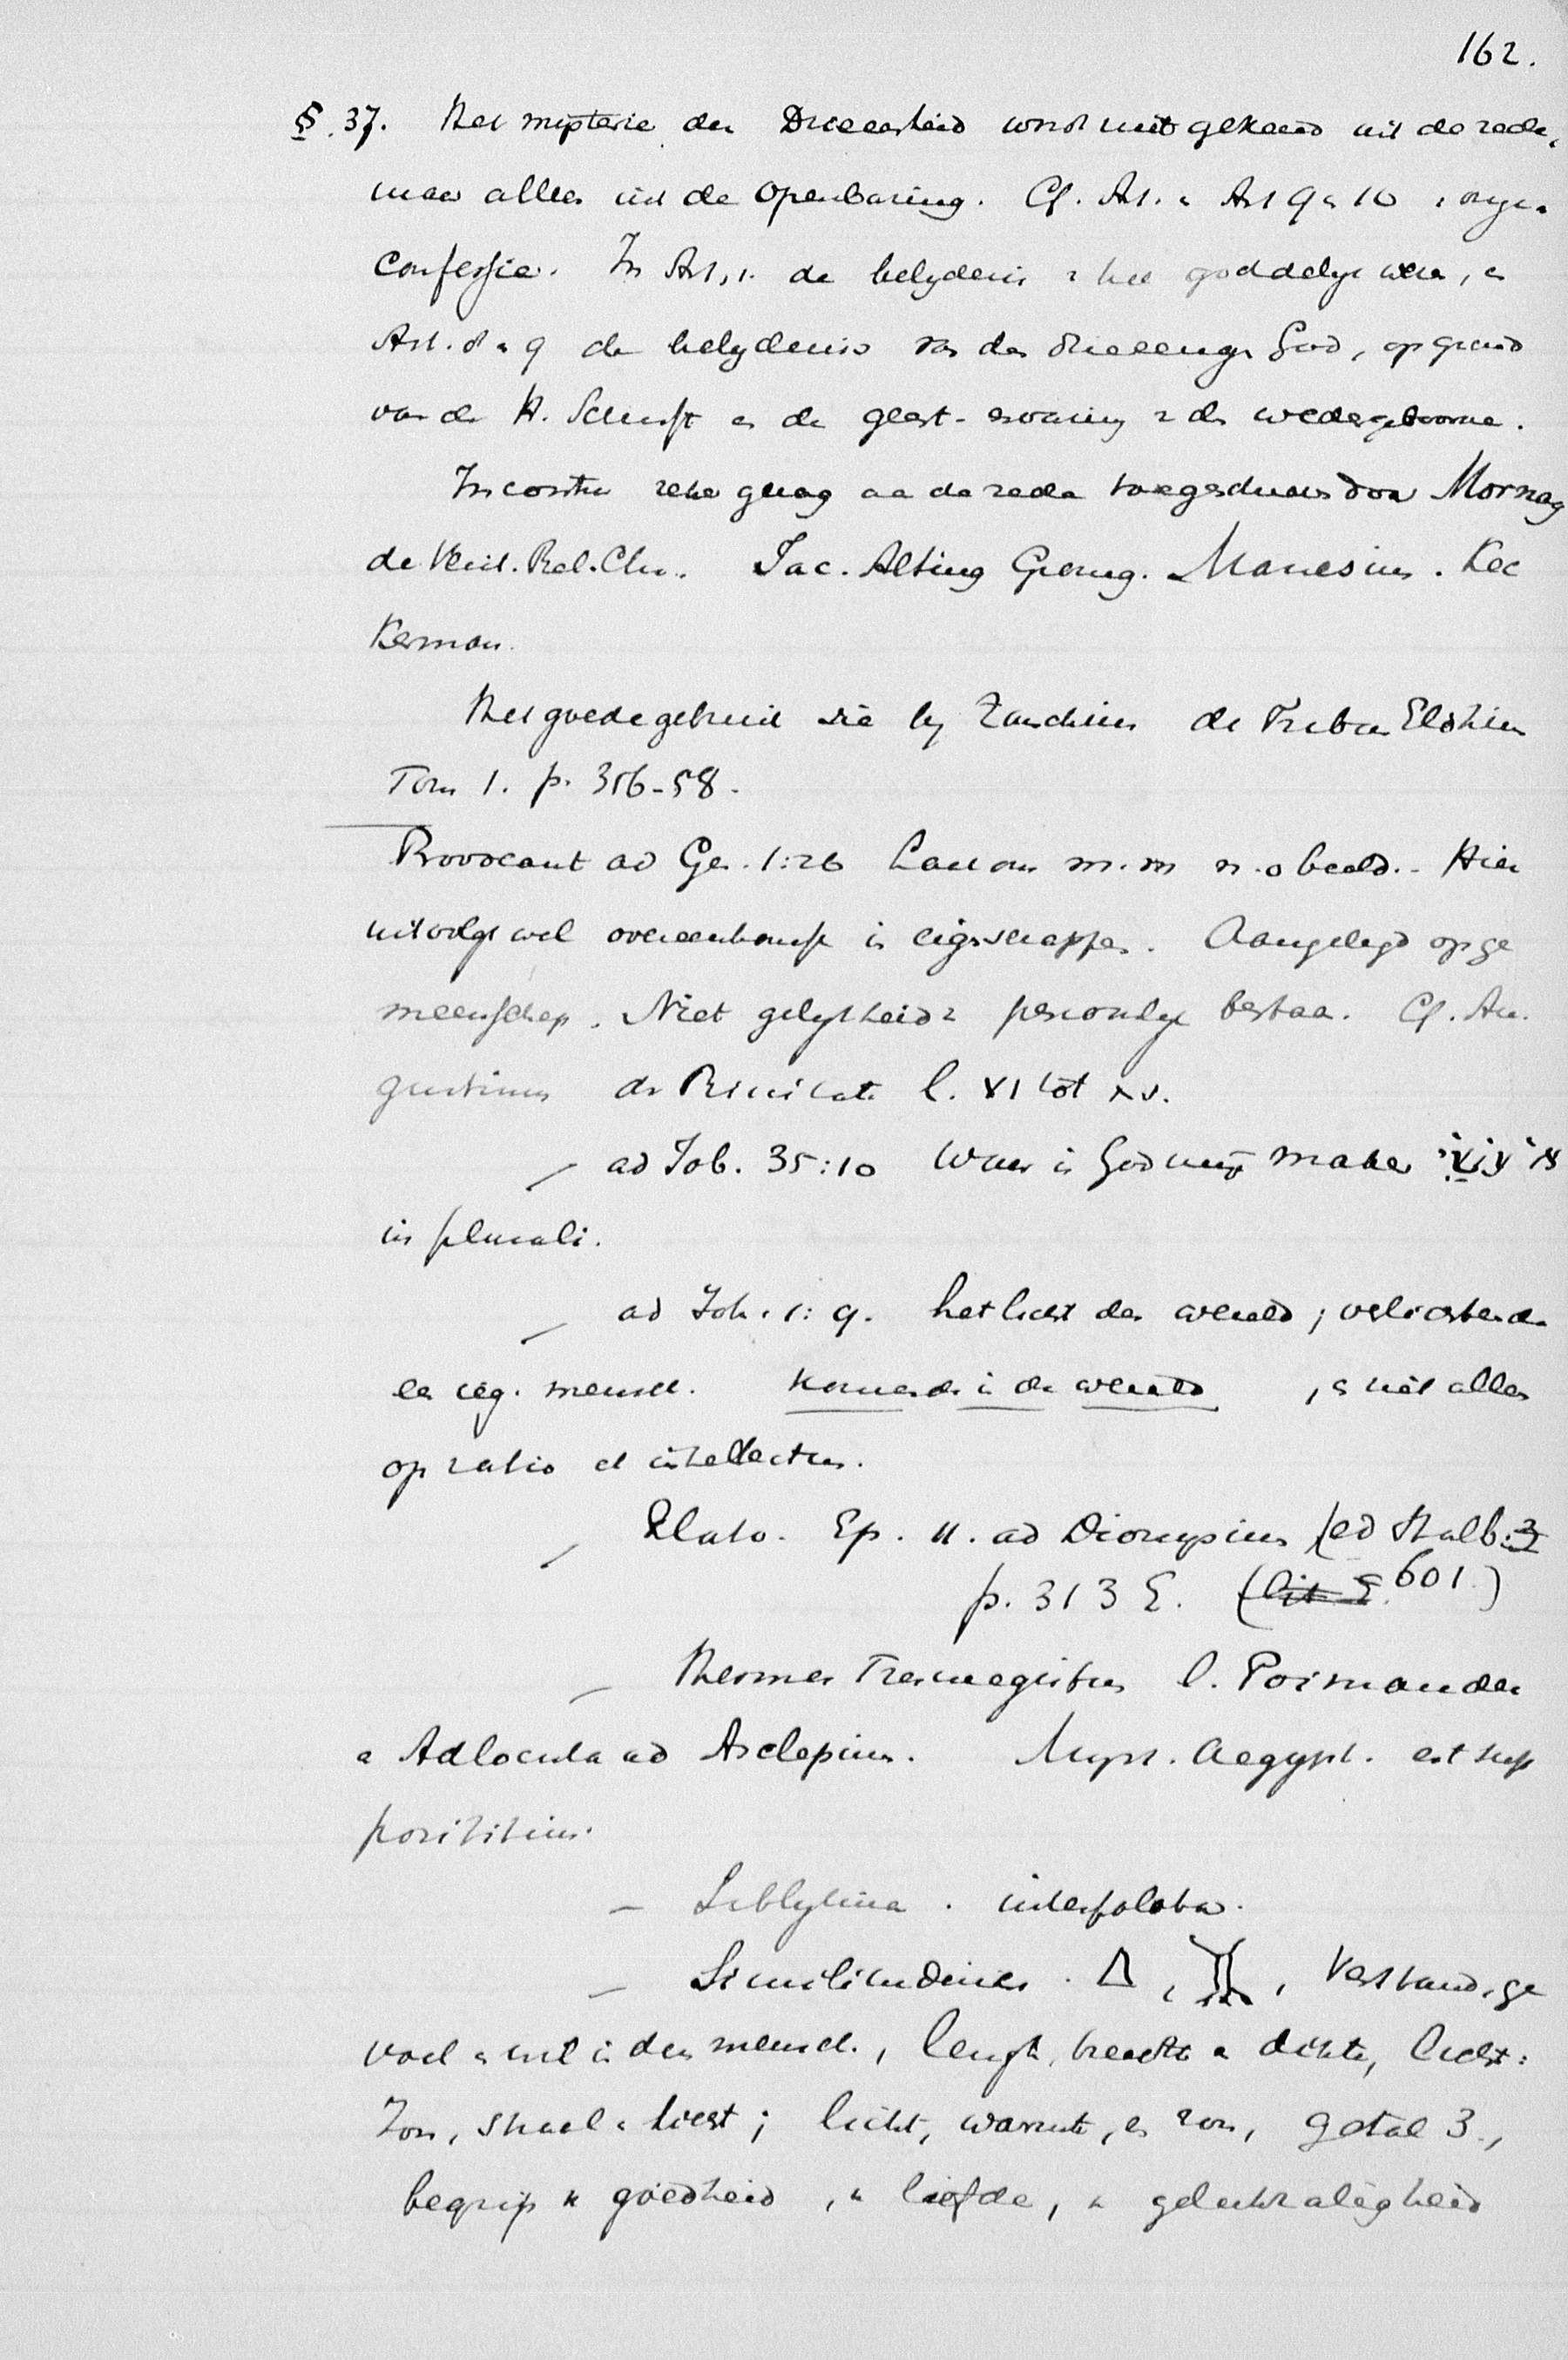 162.
§. 37. Het mysterie der Drieeenheid wordt niet gekend uit de rede,
maar alleen uit de Openbaring. Cf. Art. 1 Art 9 & 10 onze
Confessie. In Art. 1. de belydenis v het goddelyk wezen, en
Art. 8 & 9 de belydenis van den drieenigen God, op grond
van de H. Schrift en de geest-ervaring v de wedergeboorne.
In contra zeker gezag aan de rede toegeschreven door Mornay
de Verit. Rel. Chr. Jac. Alting Gronig. Maresius. Kec
kerman.
Het goede gebruik zie by Zanchius de Tribus Elohim
Tom 1. p. 356-58.
Provocant ad Gen. 1:26 Laat ons m. m n. o beeld. - Hier
uit volgt wel overeenkomst in eigenschappen. Aangelegd op ge
meenschap. Niet gelykheid v persoonlyk bestaan. Cf. Au.
gustinus de Trinitate l. XI tot XV.
- ad Job. 35:10 Waar is God mijn maker עֹשָׂי
in plurali.
- ad Joh. 1:9. het licht der wereld; verlichtende
een ieg. mensch. komende in de wereld, & niet alleen
op ratio et intellectus.
- Plato. Ep. II. ad Dionysius (ed Stalb:
p. 313 E. (601.)
- Hermes Tresmegistus l. Poimander
& Adlocuta ad Asclepium. Myst. Aegypt. est sup
posititium.
- Sibbylina. interpolata.
- Similitudines. Δ, , Verstand, ge
voel & wil in den mensch, lengte, breedte & dikte, licht:
Zon, straal & licht; licht, warmte, en zon, getal 3.,
begrip v goedheid, v liefde, v gelukzaligheid